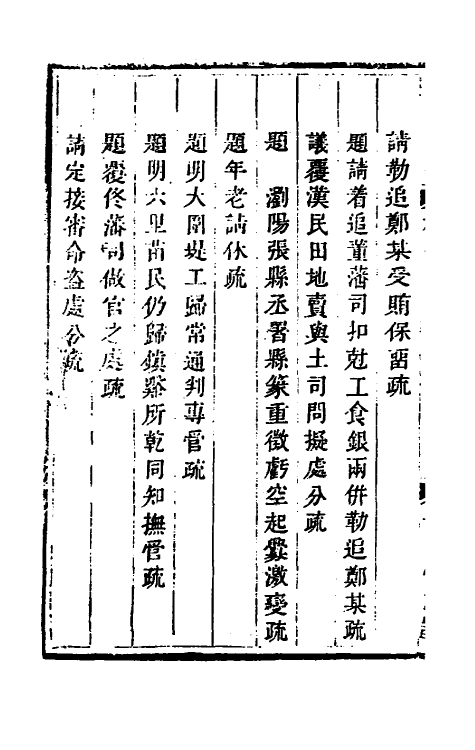 請勒追鄭某受賄保畱疏
題請着追董藩司扣尅工食銀兩併勒追鄭某疏
議覆漢民田地賣與土司問擬處分疏
題　瀏陽張縣丞署縣篆重徵虧空起釁激變疏
題年老請休疏
題明大圍堤工歸常通判專管疏
題明六里苗民仍歸鎮谿所乾同知撫管疏
題覆佟藩司做官之處疏
請定接審命盜處分疏